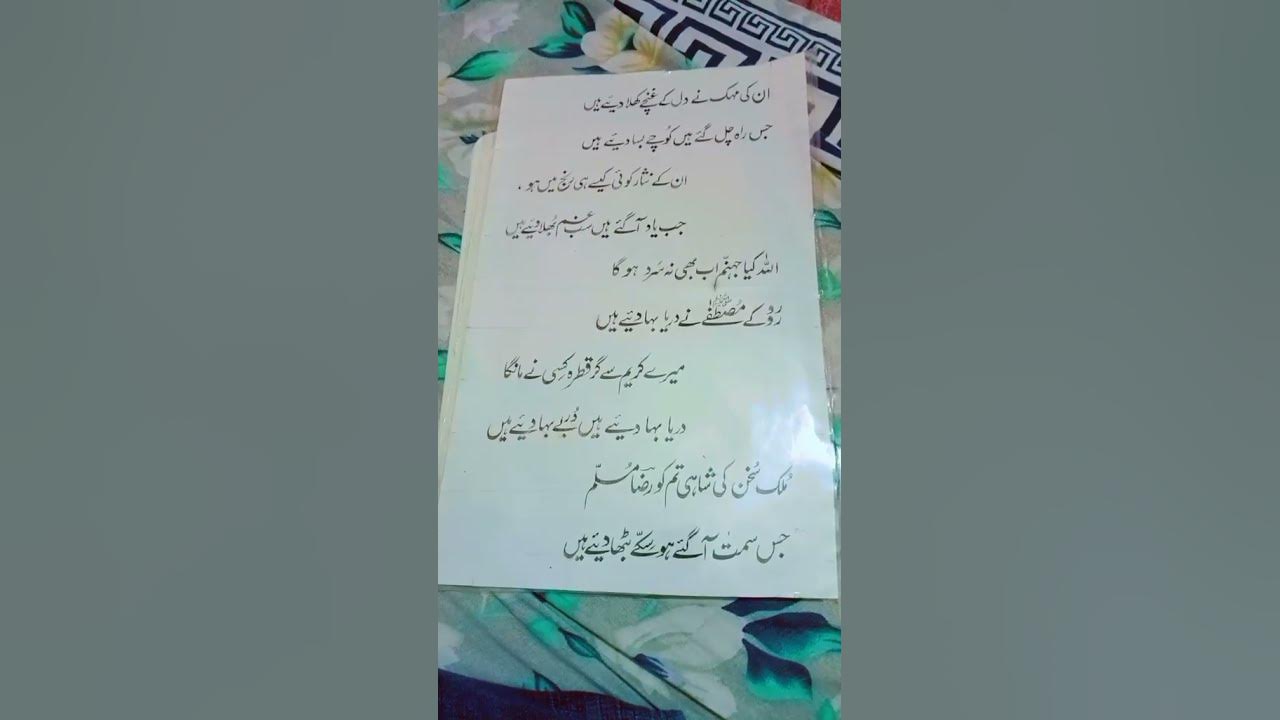 ان کی مہک نے دل کے غنچے کھلا دیئے ہیں
جس راہ چل گئے ہیں کوُچے بسا دیئے ہیں
ان کے نثار کوئی کیسے ہی رنج میں ہو .
جب یاد آ گئے ہیں سب غم بھُلا دیئے ہیں
اللہ کیا جہنّم اب بھی نہ سَرد ہو گا
رو رو کے مُصطَفٰے ﷺ نے دریا بہا دیئے ہیں
میرے کریم سے گر قطرہ کِسی نے مانگا
دریا بہا دیئے ہیں دُر بے بہا دیئے ہیں
مُلک سُخن کی شاہی تم کو رضاؔ مُسلّم
جس سمت آ گئے ہو سِکّے بٹھا دیئے ہیں